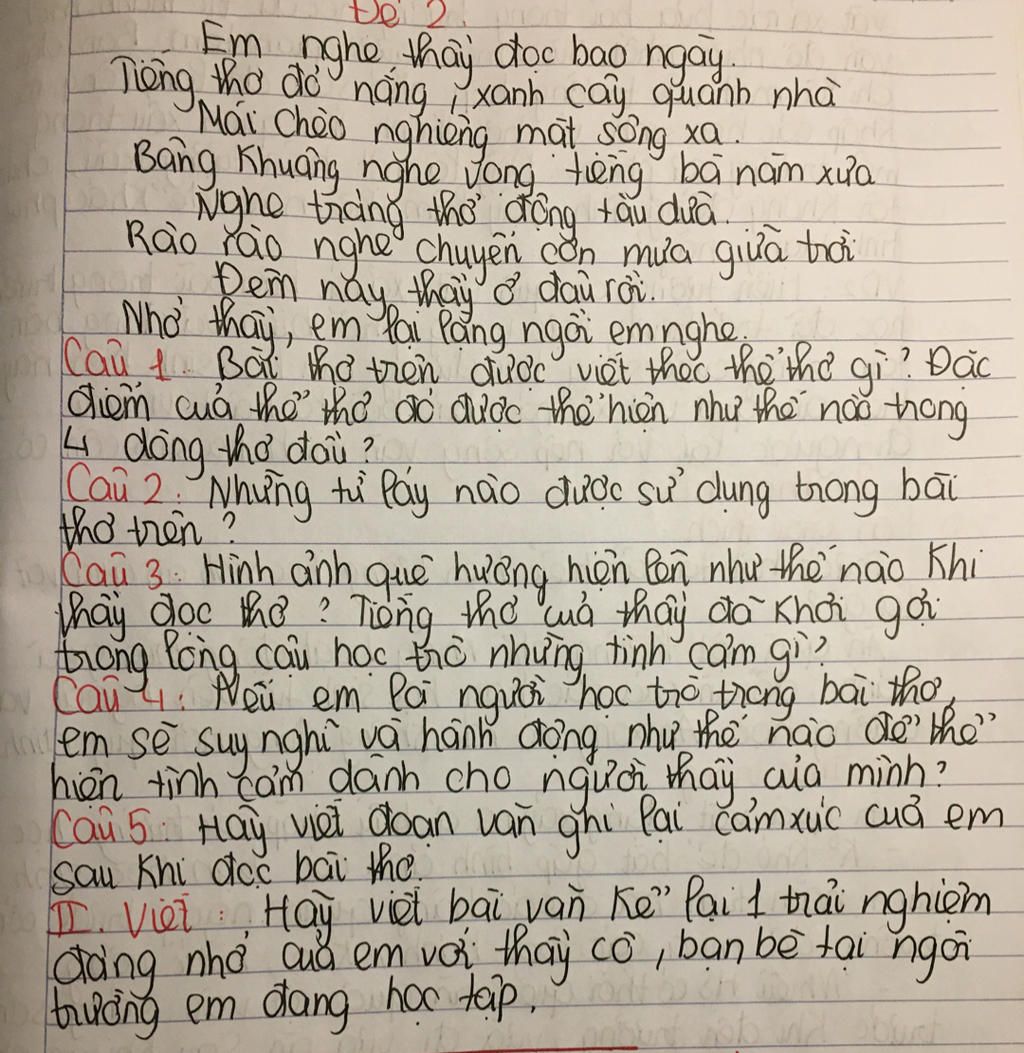 Đề 2.
Em nghe thầy đọc bao ngày.
Tiếng thơ đỏ nắng, xanh cây quanh nhà
Mái chèo nghiêng mặt sông xa.
Bâng khuâng nghe vọng tiếng bà năm xưa
Nghe trăng thở động tàu dừa.
Rào rào nghe chuyển cơn mưa giữa trời
Đêm nay thầy ở đâu rồi.
Nhớ thầy, em lại lặng ngồi em nghe.
Câu 1. Bài thơ trên được viết theo thể thơ gì? Đặc
điểm của thể thơ đó được thể hiện như thế nào trong
4 dòng thơ đầu?
Câu 2: Những từ láy nào được sử dụng trong bài
thơ trên?
Câu 3: Hình ảnh quê hương hiện lên như thế nào khi
thầy đọc thơ? Tiếng thơ của thầy đã khơi gợi
trong lòng cậu học trò những tình cảm gì?
Câu 4: Nếu em là người học trò trong bài thơ,
em sẽ suy nghĩ và hành động như thế nào để thể
hiện tình cảm dành cho người thầy của mình?
Câu 5: Hãy viết đoạn văn ghi lại cảm xúc của em
sau khi đọc bài thơ.
II. Viết: Hãy viết bài văn kể lại 1 trải nghiệm
đáng nhớ của em với thầy cô, bạn bè tại ngôi
trường em đang học tập.